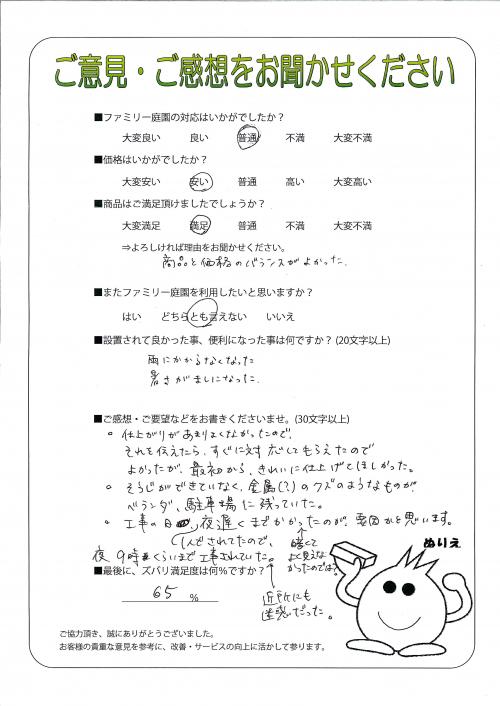 ご意見・ご感想をお聞かせください
■ファミリー庭園の対応はいかがでしたか？
大変良い　良い　普通　不満　大変不満
■価格はいかがでしたか？
大変安い　安い　普通　高い　大変高い
■商品はご満足頂けましたでしょうか？
大変満足　満足　普通　不満　大変不満
⇒よろしければ理由をお聞かせください。
商品と価格のバランスがよかった.
■またファミリー庭園を利用したいと思いますか？
はい　どちらとも言えない　いいえ
■設置されて良かった事、便利になった事は何ですか？(20文字以上)
雨にかからなくなった
暑さがましになった.
■ご感想・ご要望などをお書きくださいませ。(30文字以上)
。仕上がりがあまりよくなかったので、
それを伝えたら、すぐに対応してもらえたので
よかったが、最初から、きれいに仕上げてほしかった。
。そうじができていなく、金属(?)のクズのようなものが、
ベランダ、駐車場に残っていた。
。工事の日、夜遅くまでかかったのが、要因かと思います。
1人でされてたので、
夜9時くらいまで工事されていた。
暗くて
よく見えな
かったのでは?
近所にも
迷惑だった。
ぬりえ
■最後に、ズバリ満足度は何％ですか？
65 %
ご協力頂き、誠にありがとうございました。
お客様の貴重な意見を参考に、改善・サービスの向上に活かして参ります。